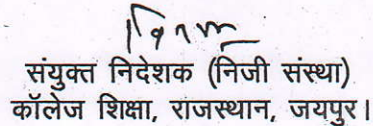 संयुक्त निदेशक (निजी संस्था)
कॉलेज शिक्षा, राजस्थान, जयपुर।